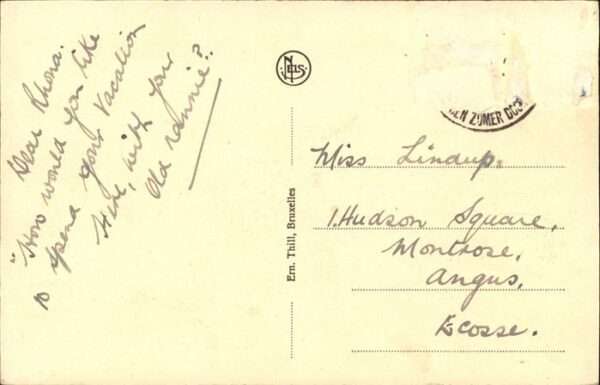 Dear Rhona.
"How would you like
to spend your Vacation
Here, with your
Old Nannie?.
NELS
EN ZOMER DOO
Ern. Thill, Bruxelles
Miss Lindup.
1. Hudson Square,
Montrose.
Angus,
Ecosse.